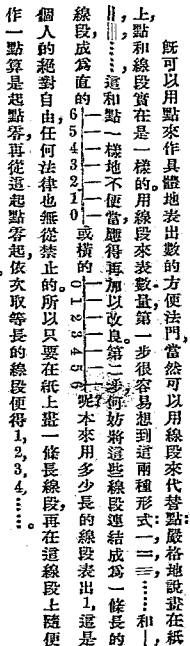 既可以用點來作具體地表出數的方便法門,當然可以用線段來代替點;嚴格地說,畫在紙
上,點和線段實在是一樣的。用線段來表數量,第一步很容易想到這兩種形式:一二三……和|,
||,|||……這和點一樣地不便當,應得再加以改良。第二步,何妨將這些線段連結成爲一條長的
線段,成爲直的 6 5 4 3 2 1 0 或橫的 0 1 2 3 4 5 6 呢?本來用多少長的線段表出1,這是
個人的絕對自由,任何法律也無從禁止的。所以只要在紙上畫一條長線段,再在這線段上隨便
作一點算是起點零,再從這起點零起,依次取等長的線段便得1,2,3,4,……。